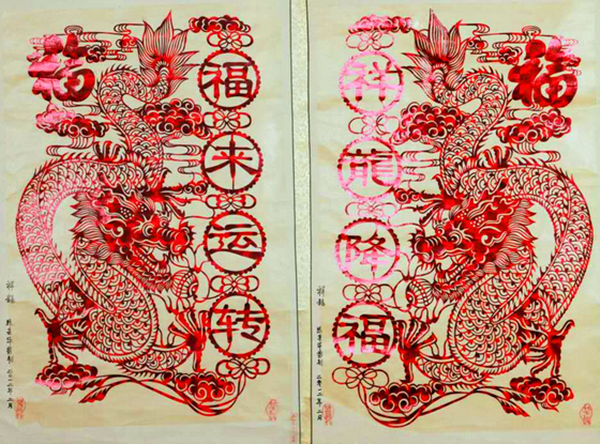 福
福来运转
祥龍
祥龍降福
福
祥龍